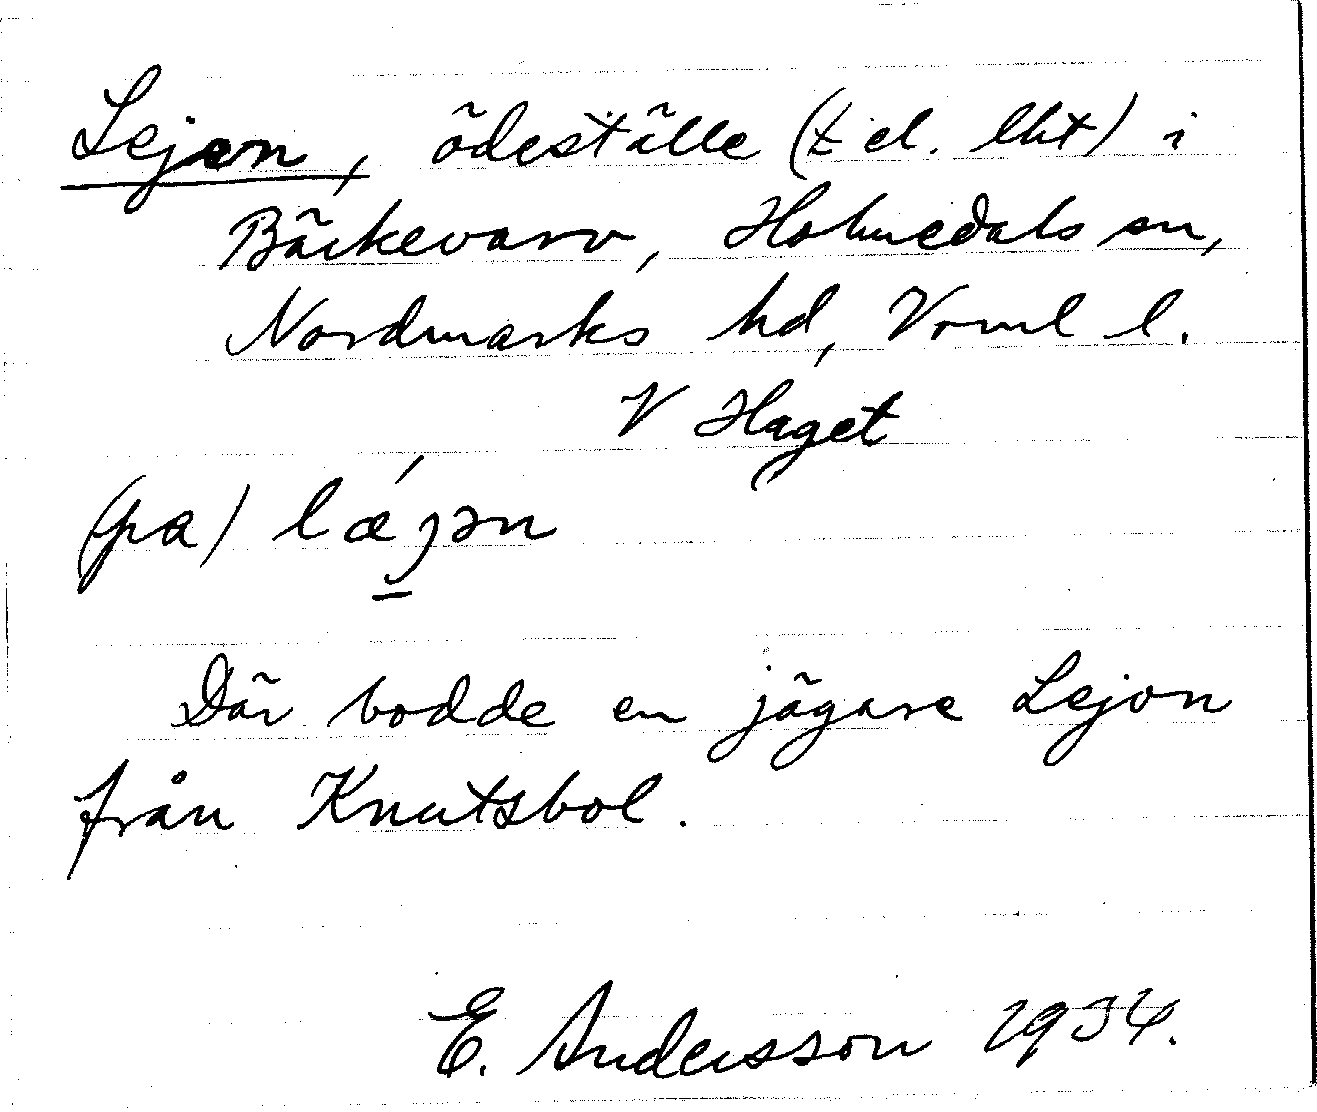 Lejon, ödeställe (t el. lht) i
Bäckevarv, Holmedals sn,
Nordmarks hd, Vrml l.
V Haget
(pa) lǽȷən
Där bodde en jägare Lejon
från Knutsbol.
E. Andersson 1934.